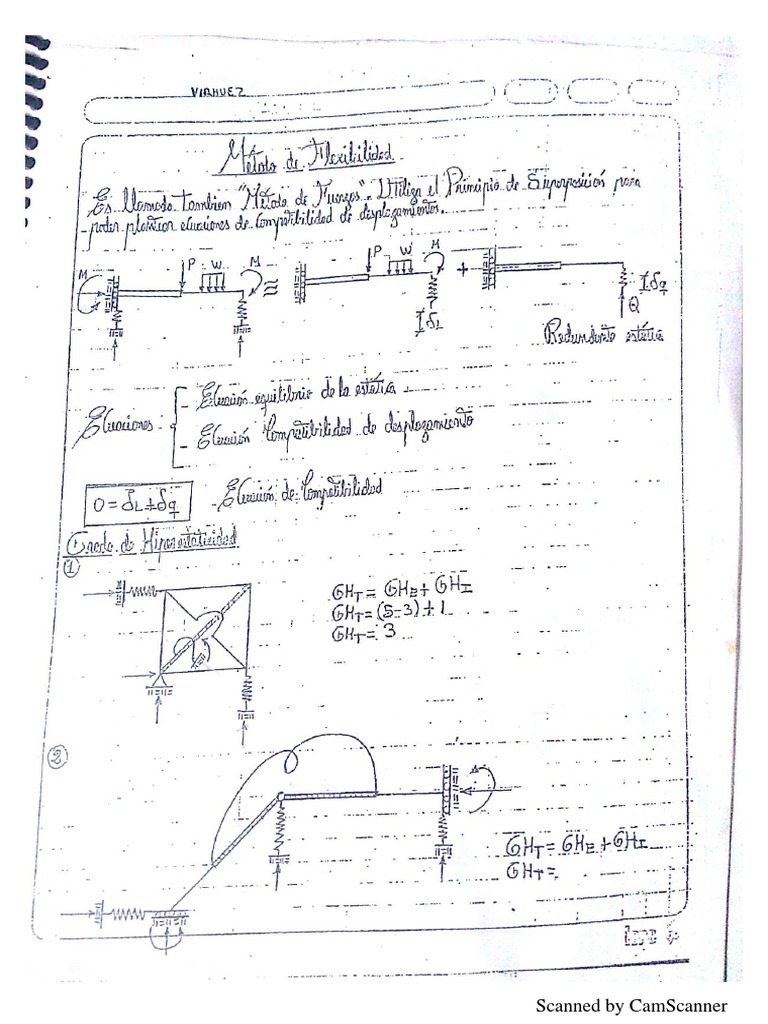 VIRHUEZ
Método de Flexibilidad
Es llamado tambien "Método de Fuerzas". Utiliza el Principio de Superposición para
poder plantear ecuaciones de compatibilidad de desplazamientos.
M P W M ≅ P W M +
δL Q δq
Redundante estática
Ecuaciones
- Ecuación equilibrio de la estática
- Ecuación Compatibilidad de desplazamiento
0 = δL + δq Ecuación de Compatibilidad
Grado de Hiperestaticidad
1
GHT = GHE + GHI
GHT = (5-3) + 1
GHT = 3
2
GHT = GHE + GHI
GHT =
Scanned by CamScanner